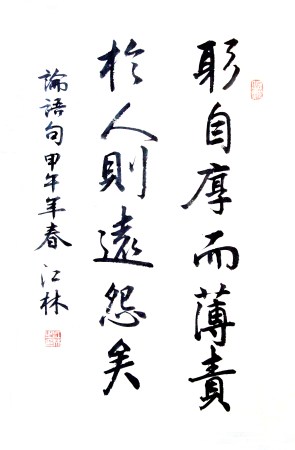 躬自厚而薄責
於人則遠怨矣
論語句甲午年春 江林